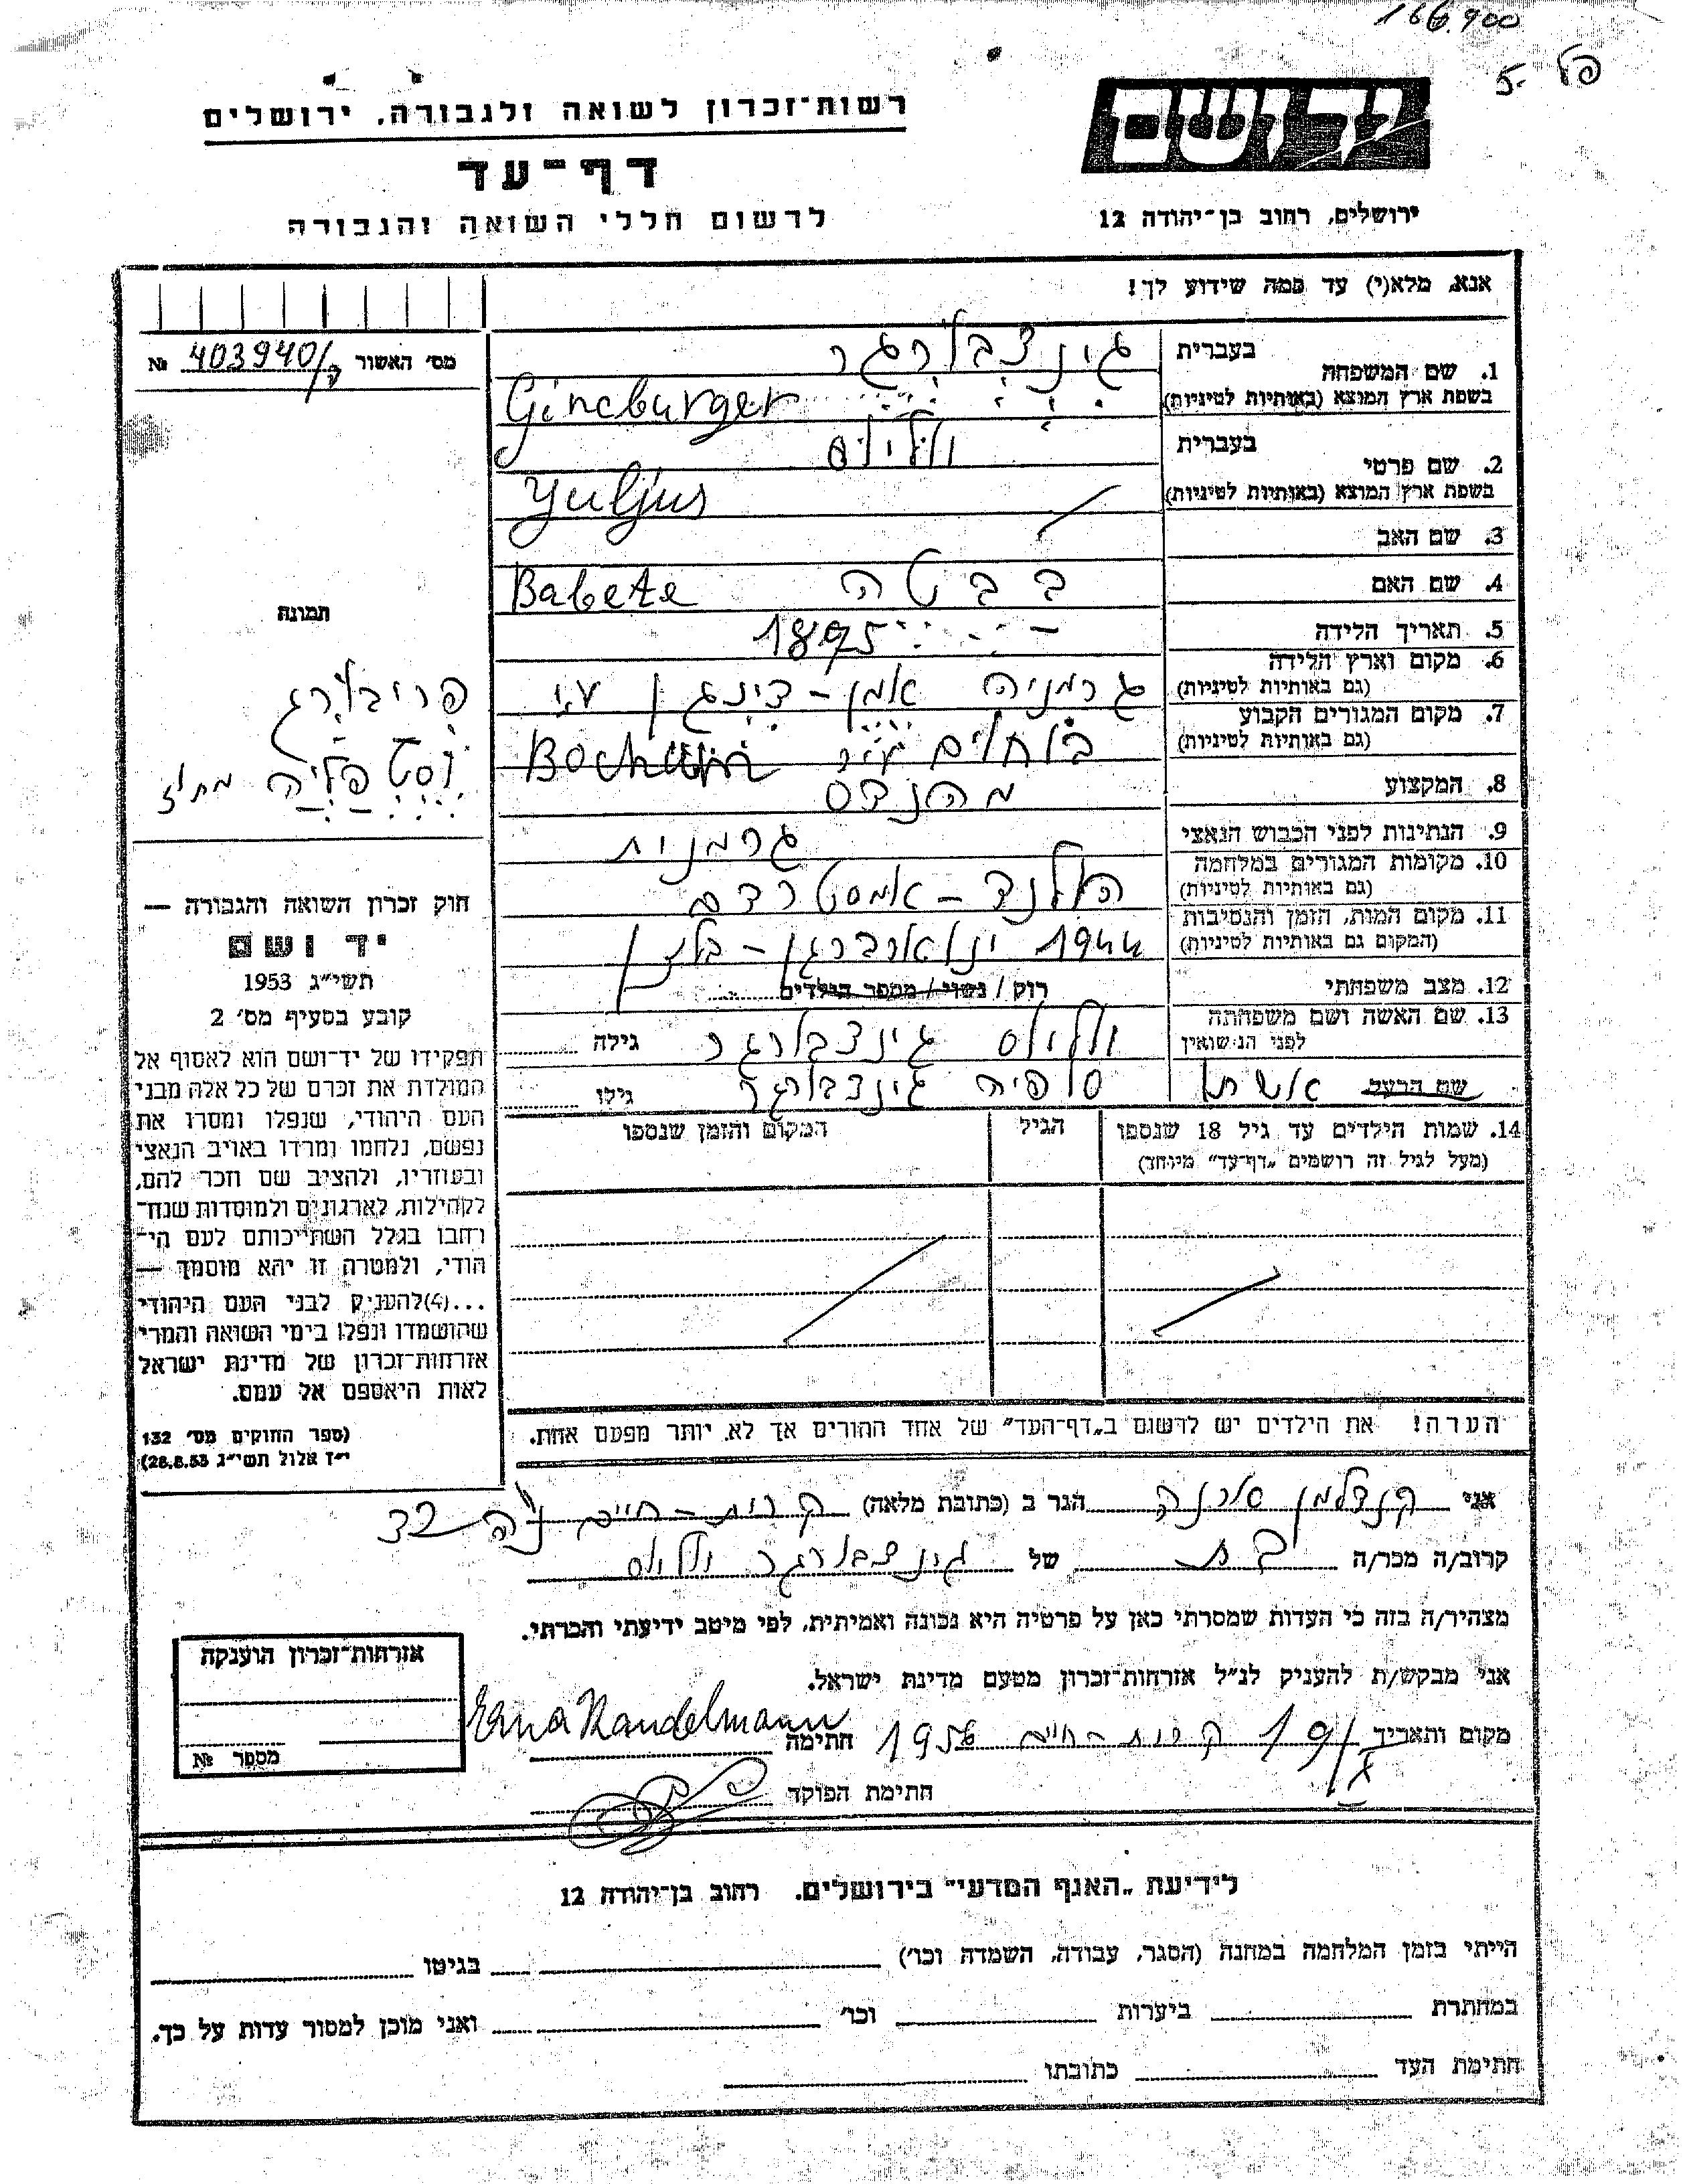 166.900
פל 5.
יד ושם
ירושלים, רחוב בן־יהודה 12
רשות־זכרון לשואה ולגבורה, ירושלים
דף־עד
לרשום חללי השואה והגבורה
אנא, מלא(י) עד כמה שידוע לך!
מס׳ האשור 403940/ק №
1. שם המשפחה בעברית גינצבורגר
בשפת ארץ המוצא (באותיות לטיניות) Gincburger
2. שם פרטי בעברית יוליוס
בשפת ארץ המוצא (באותיות לטיניות) Yuljus
3. שם האב
4. שם האם בבטה Babete
5. תאריך הלידה 1875
6. מקום וארץ הלידה גרמניה
(גם באותיות לטיניות)
7. מקום המגורים הקבוע בוחום עיר Bochum
(גם באותיות לטיניות)
8. המקצוע מהנדס
9. הנתינות לפני הכבוש הנאצי גרמנית
10. מקומות המגורים במלחמה הולנד - אמסטרדם
(גם באותיות לטיניות)
11. מקום המות, הזמן והנסיבות 1944 ינואר ברגן - בלזן
(המקום גם באותיות לטיניות)
12. מצב משפחתי רוק / נשוי / מספר הילדים
13. שם האשה ושם משפחתה יוליוס גינצבורגר גילה
לפני הנשואין
שם הבעל אשתו סופיה גינצבורגר גילו
14. שמות הילדים עד גיל 18 שנספו הגיל המקום והזמן שנספו
(מעל לגיל זה רושמים „דף־עד” מיוחד)
הערה! את הילדים יש לרשום ב„דף־העד” של אחד ההורים אך לא יותר מפעם אחת.
תמונה
פריבורג
וסטפליה מחוז
חוק זכרון השואה והגבורה —
יד ושם
תשי״ג 1953
קובע בסעיף מס׳ 2
תפקידו של יד־ושם הוא לאסוף אל
המולדת את זכרם של כל אלה מבני
העם היהודי, שנפלו ומסרו את
נפשם, נלחמו ומרדו באויב הנאצי
ובעוזריו, ולהציב שם וזכר להם,
לקהילות, לארגונים ולמוסדות שנח־
רחבו בגלל השתייכותם לעם הי־
הודי, ולמטרה זו יהא מוסמך —
...(4) להעניק לבני העם היהודי
שהושמדו ונפלו בימי השואה והמרי
אזרחות־זכרון של מדינת ישראל
לאות היאספם אל עמם.
(ספר החוקים מס׳ 132
י״ז אלול תשי״ג 28.8.53)
אני קנדלמן ארנה הגר ב (כתובת מלאה) קרית-חיים
קרוב/ה מכר/ה בת של גינצבורגר יוליוס
מצהיר/ה בזה כי העדות שמסרתי כאן על פרטיה היא נכונה ואמיתית, לפי מיטב ידיעתי והכרתי.
אני מבקש/ת להעניק לנ״ל אזרחות־זכרון מטעם מדינת ישראל.
מקום ותאריך 19/ קרית-חיים 1956 חתימה Erna Kandelmann
חתימת הפוקד
אזרחות־זכרון הוענקה
מספר №
לידיעת „האגף המדעי” בירושלים. רחוב בן־יהודה 12
הייתי בזמן המלחמה במחנה (הסגר, עבודה, השמדה וכו׳) בגיטו
במחתרת ביערות וכו׳ ואני מוכן למסור עדות על כך.
חתימת העד כתובתו